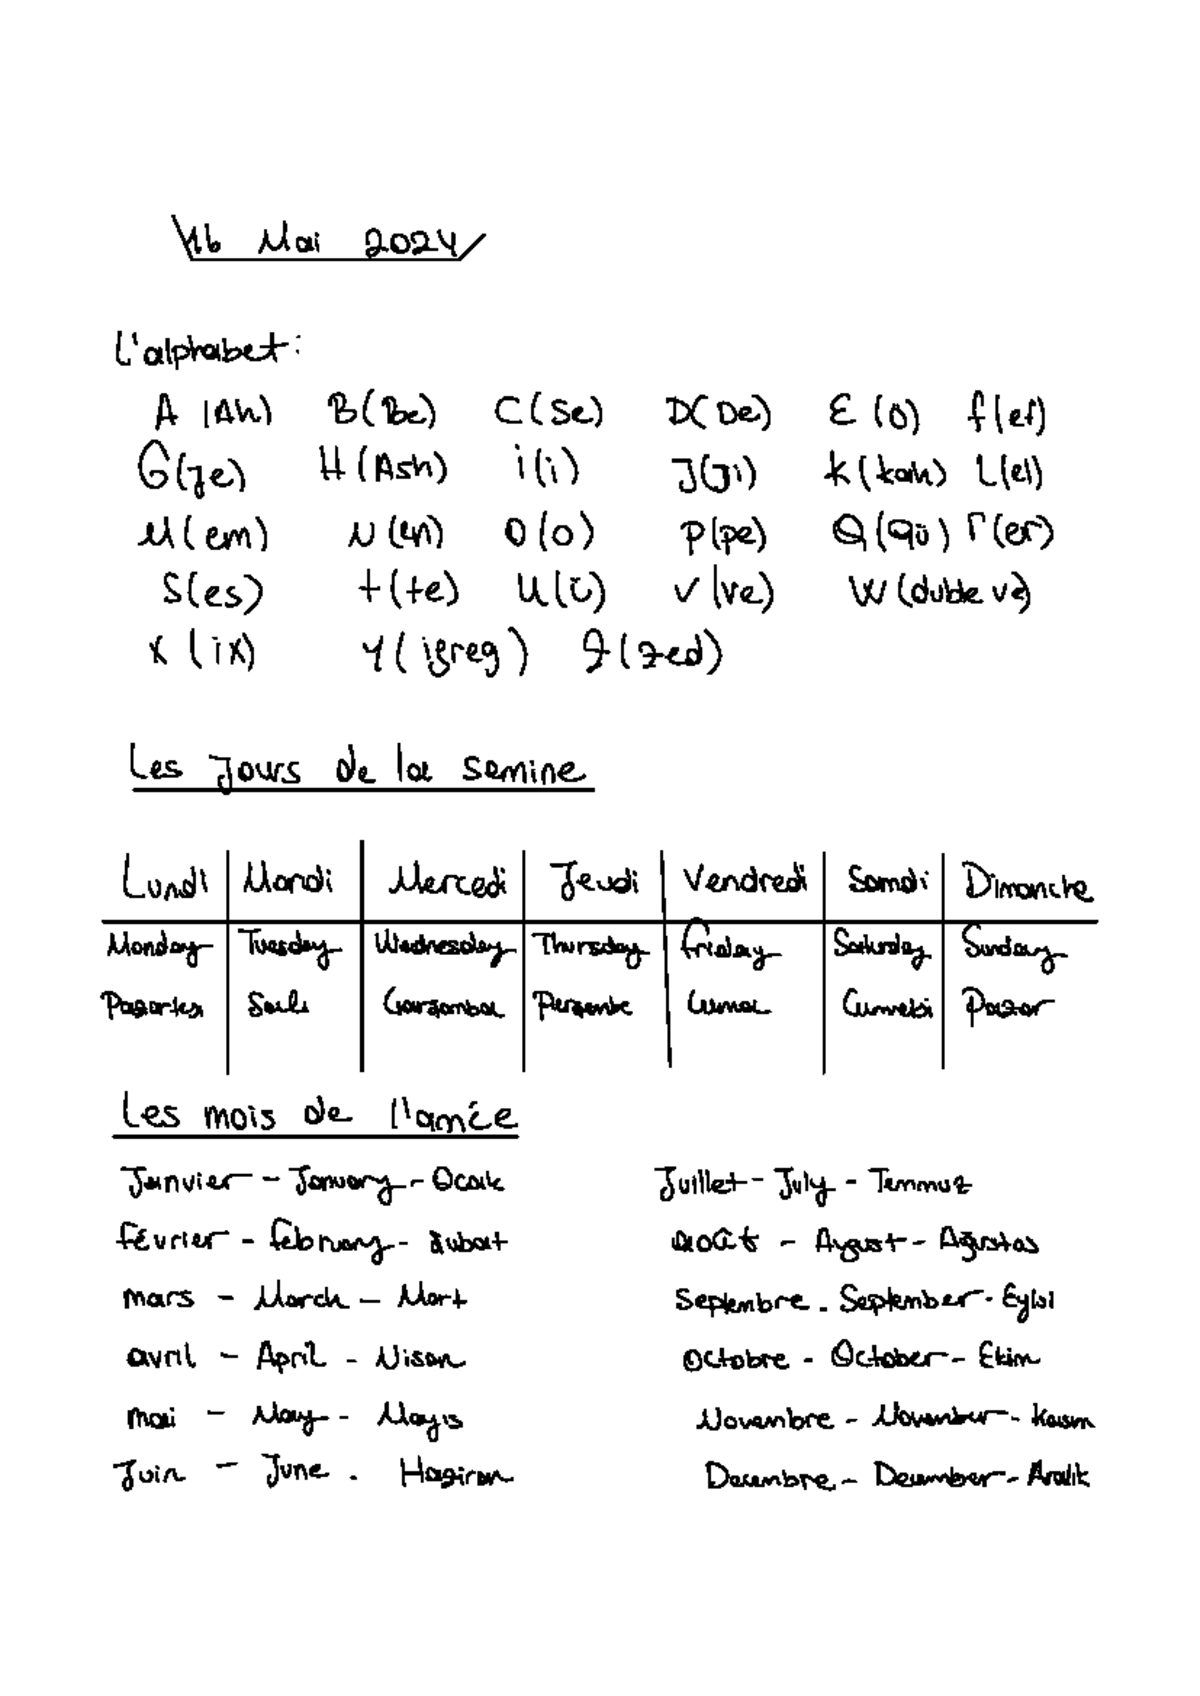 16 Mai 2024
L'alphabet:
A (Ah) B(Be) C(Se) D(De) E(ö) f(ef)
G(je) H(Ash) i(i) J(Ji) k(kah) L(el)
M(em) N(en) O(o) P(pe) Q(qü) r(er)
S(es) t(te) U(ü) V(ve) W(duble ve)
X(ix) Y(igreg) Z(zed)
Les Jours de la semine
Lundi Mardi Mercedi Jeudi Vendredi Samdi Dimanche
Monday Tuesday Wednesday Thursday friday Saturday Sunday
Pazartesi Salı Çarşamba Perşembe Cuma Cumrtesi Pazar
Les mois de l'année
Janvier - January - Ocak Juillet - July - Temmuz
février - february - Şubat août - August - Ağustos
mars - March - Mart Septembre - September - Eylül
avril - April - Nisan Octobre - October - Ekim
mai - May - Mayıs Novembre - November - Kasım
Juin - June - Haziran Decembre - December - Aralık